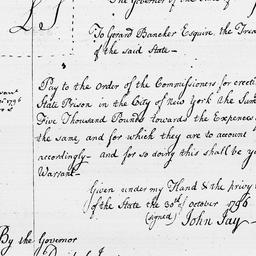 The Governor of the State of
LS
To Gerard Bancker Esquire, the Trea
of the said State—
Pay to the Order of the Commissioners for erecti
State Prison in the City of New York the Sum
Five Thousand Pounds towards the Expences
the same, and for which they are to account
accordingly— and for so doing this shall be yo
Warrant—
Given under my Hand & the privy
of the State the 30th October 1796
(signed) John Jay—
By the Governor